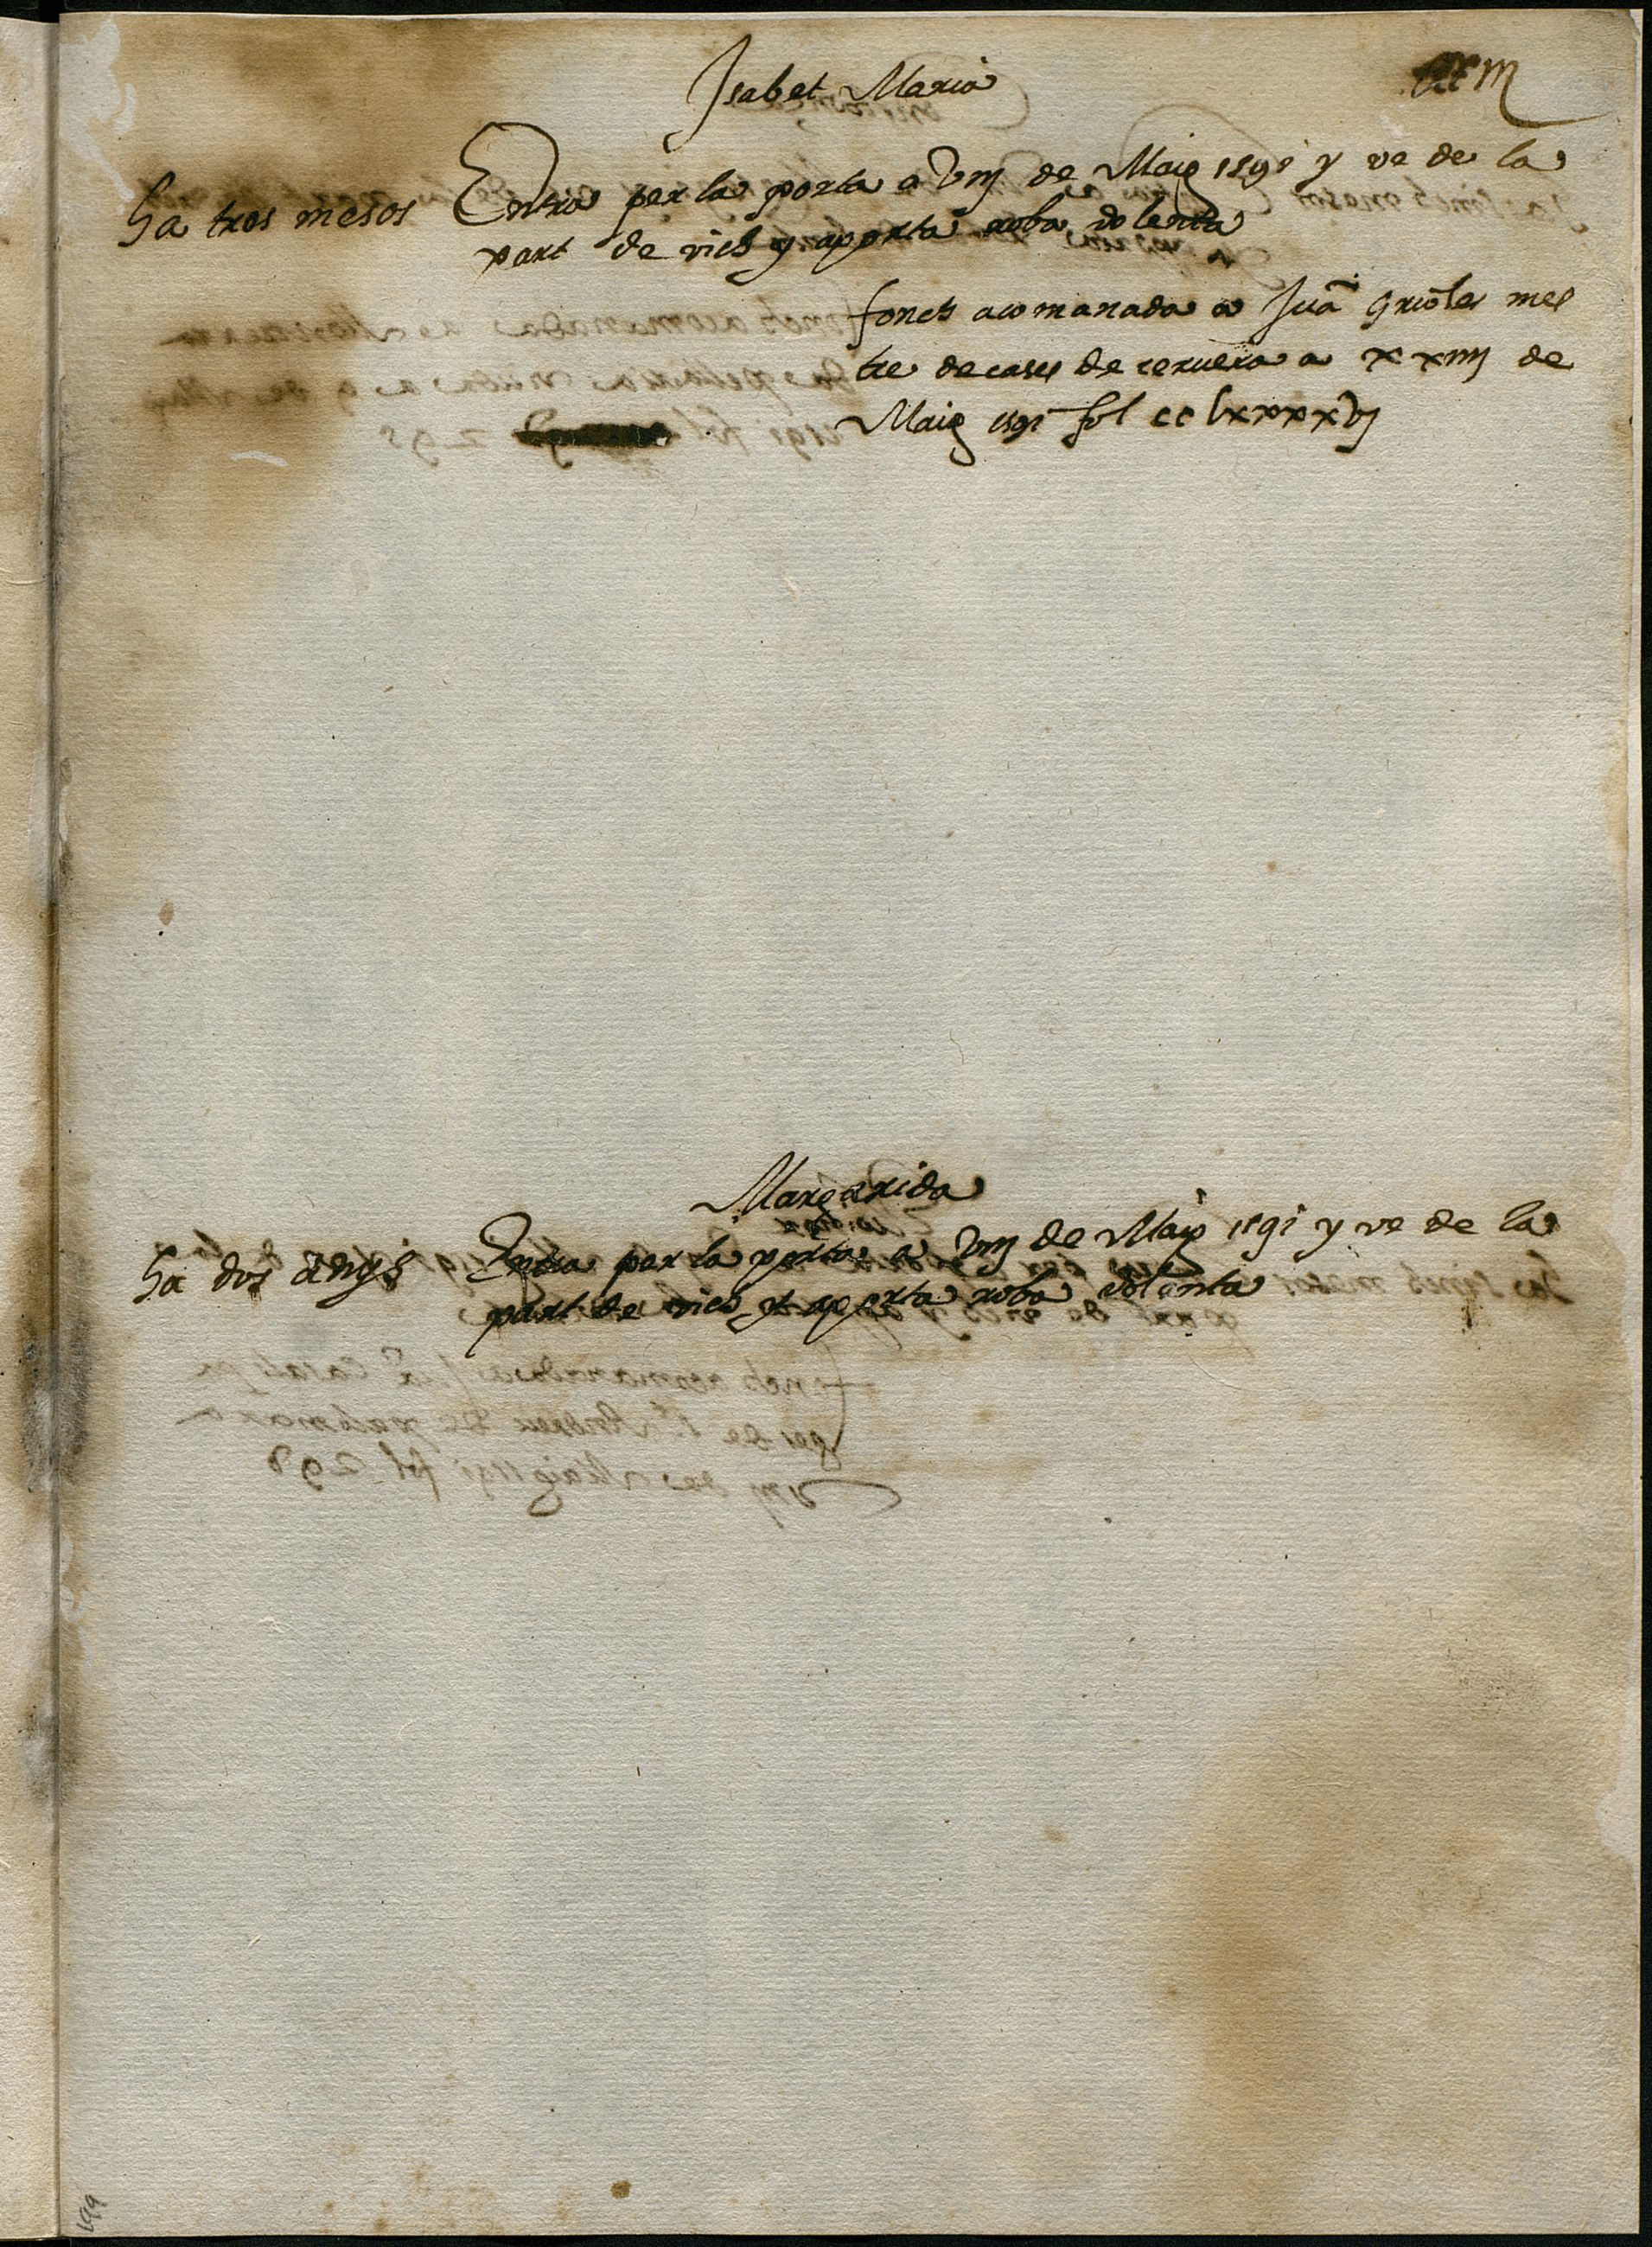 Isabet Maria
ha tres mesos Entra per la porta a viij de Maig 1591 y ve de la
part de vich y aporta roba dolenta
fonch acomanada a Juã Grioles mes
tre de cases de ceruera a xxiiij de
Maig 1591 fol cclxxxxvj
Margarida
ha dos anys Entra per la porta a viij de Maig 1591 y ve de la
part de vich y aporta roba dolenta
199